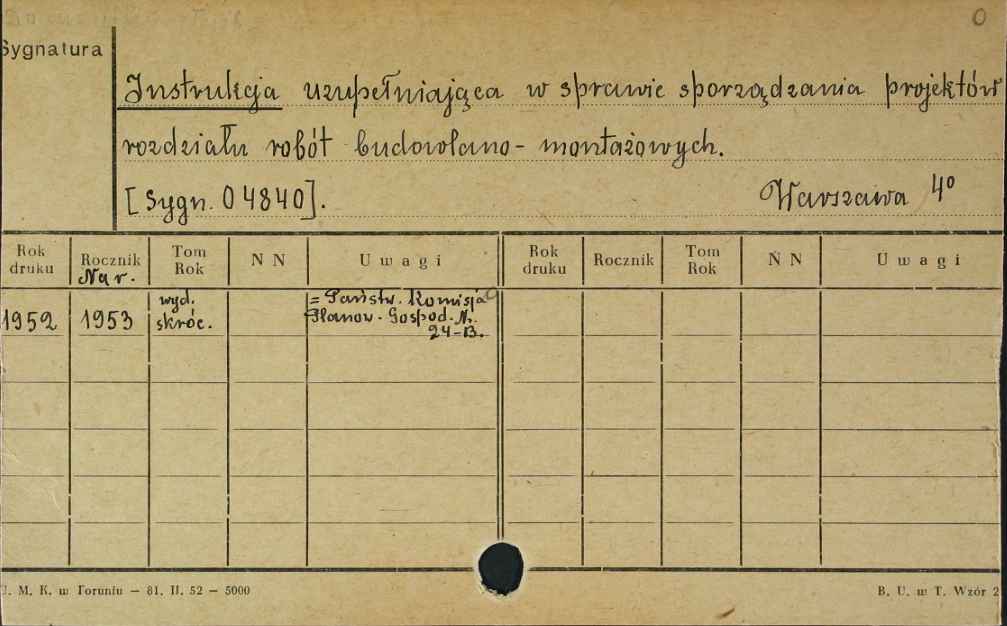 0
Sygnatura
Instrukcja uzupełniająca w sprawie sporządzania projektów
rozdziału robót budowlano-montażowych.
[Sygn. 04840]. Warszawa 4°
Rok druku Rocznik Nar. Tom Rok N N Uwagi Rok druku Rocznik Tom Rok N N Uwagi
1952 1953 wyd. skróc. = Państw. Komisja
Planow. Gospod. Nr.
24-B.
U. M. K. w Toruniu — 81. II. 52 — 5000 B. U. w T. Wzór 2